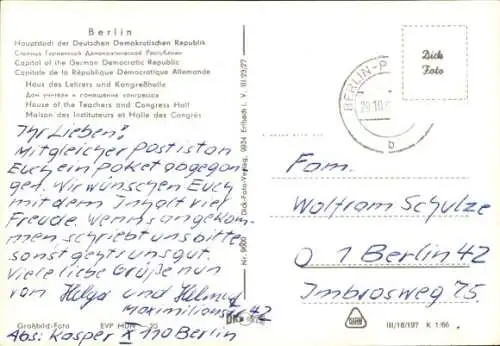 Berlin
Hauptstadt der Deutschen Demokratischen Republik
Столица Германской Демократической Республики
Capital of the German Democratic Republic
Capitale de la République Démocratique Allemande
Haus des Lehrers und Kongreßhalle
Дом учителя и помещение конгресса
House of the Teachers and Congress Hall
Maison des Instituteurs et Halle des Congrès
Ihr Lieben!
Mit gleicher Post ist an
Euch ein Paket abgegan
gen. Wir wünschen Euch
mit dem Inhalt viel
Freude. Wenns angekom-
men schriebt uns bitte,
sonst geht's uns gut.
Viele liebe Grüße nun
von Helga und Helmut
Maximilianstr. 42
Abs: Kasper X 110 Berlin
Großbild-Foto EVP MDN
Nr. 9600 Dick-Foto-Verlag, 9934 Erlbach i. V. III/23/27
Dick
Foto
BERLIN-P
29.10.
b
Fam.
Wolfram Schulze
O 1 Berlin 42
Imbrosweg 75.
III/18/197 K 1/66